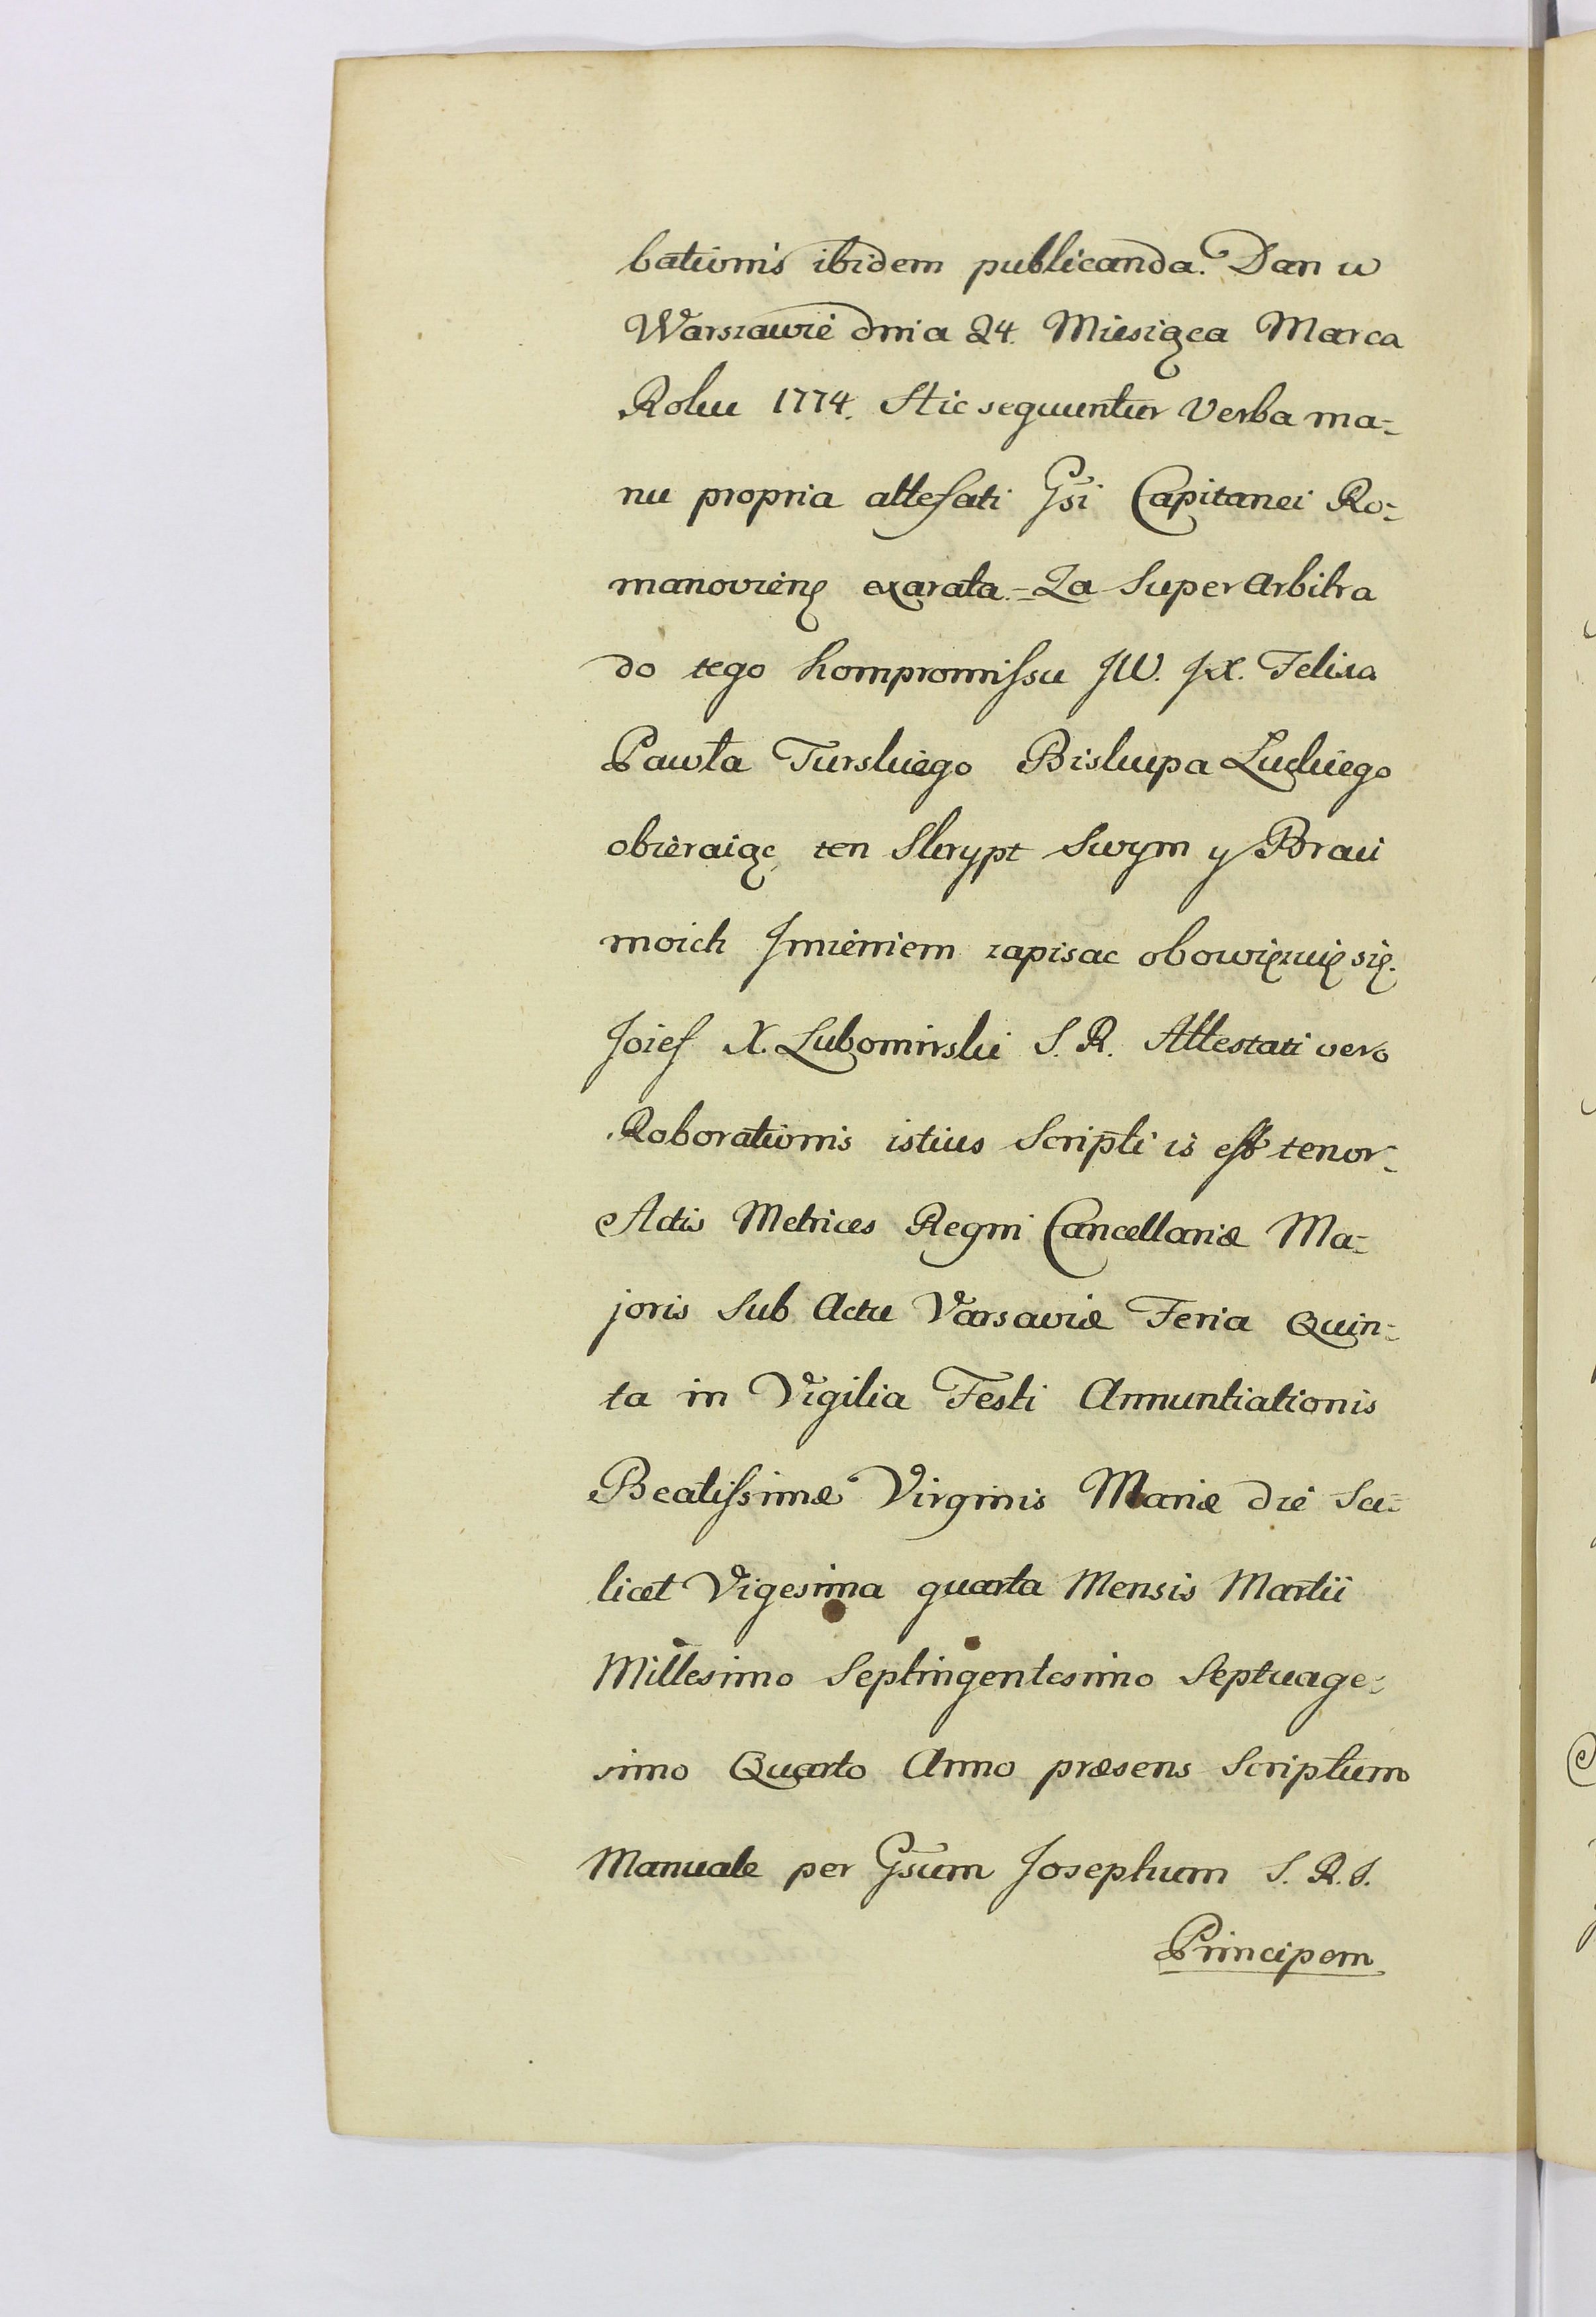 bationis ibidem publicanda. Dan w
Warszawie dnia 24. Miesiąca Marca
Roku 1774. Hic sequuntur Verba ma=
nu propria attefati Gsi Capitanei Ro=
manovien exarata.=Za Super Arbitra
do tego kompromissu JW. JX. Felixa
Pawła Turskiego Biskupa Łuckiego
obieraiąc, ten Skrypt Swym y Braci
moich Jmieniem zapisac obowięzuię się.
Jozef X. Lubomirski S. R. Attestati vero
Roborationis istius Scripti is est tenor=
Actis Metrices Regni Cancellariæ Ma=
joris Sub Actu Varsaviæ Feria Quin=
ta in Vigilia Festi Annuntiationis
Beatissimæ Virginis Mariæ die Sci=
licet Vigesima quarta Mensis Martii
Millesimo Septingentesimo Septuage=
simo Quarto Anno præsens Scriptum
Manuale per Gsum Josephum S. R. J.
Principem